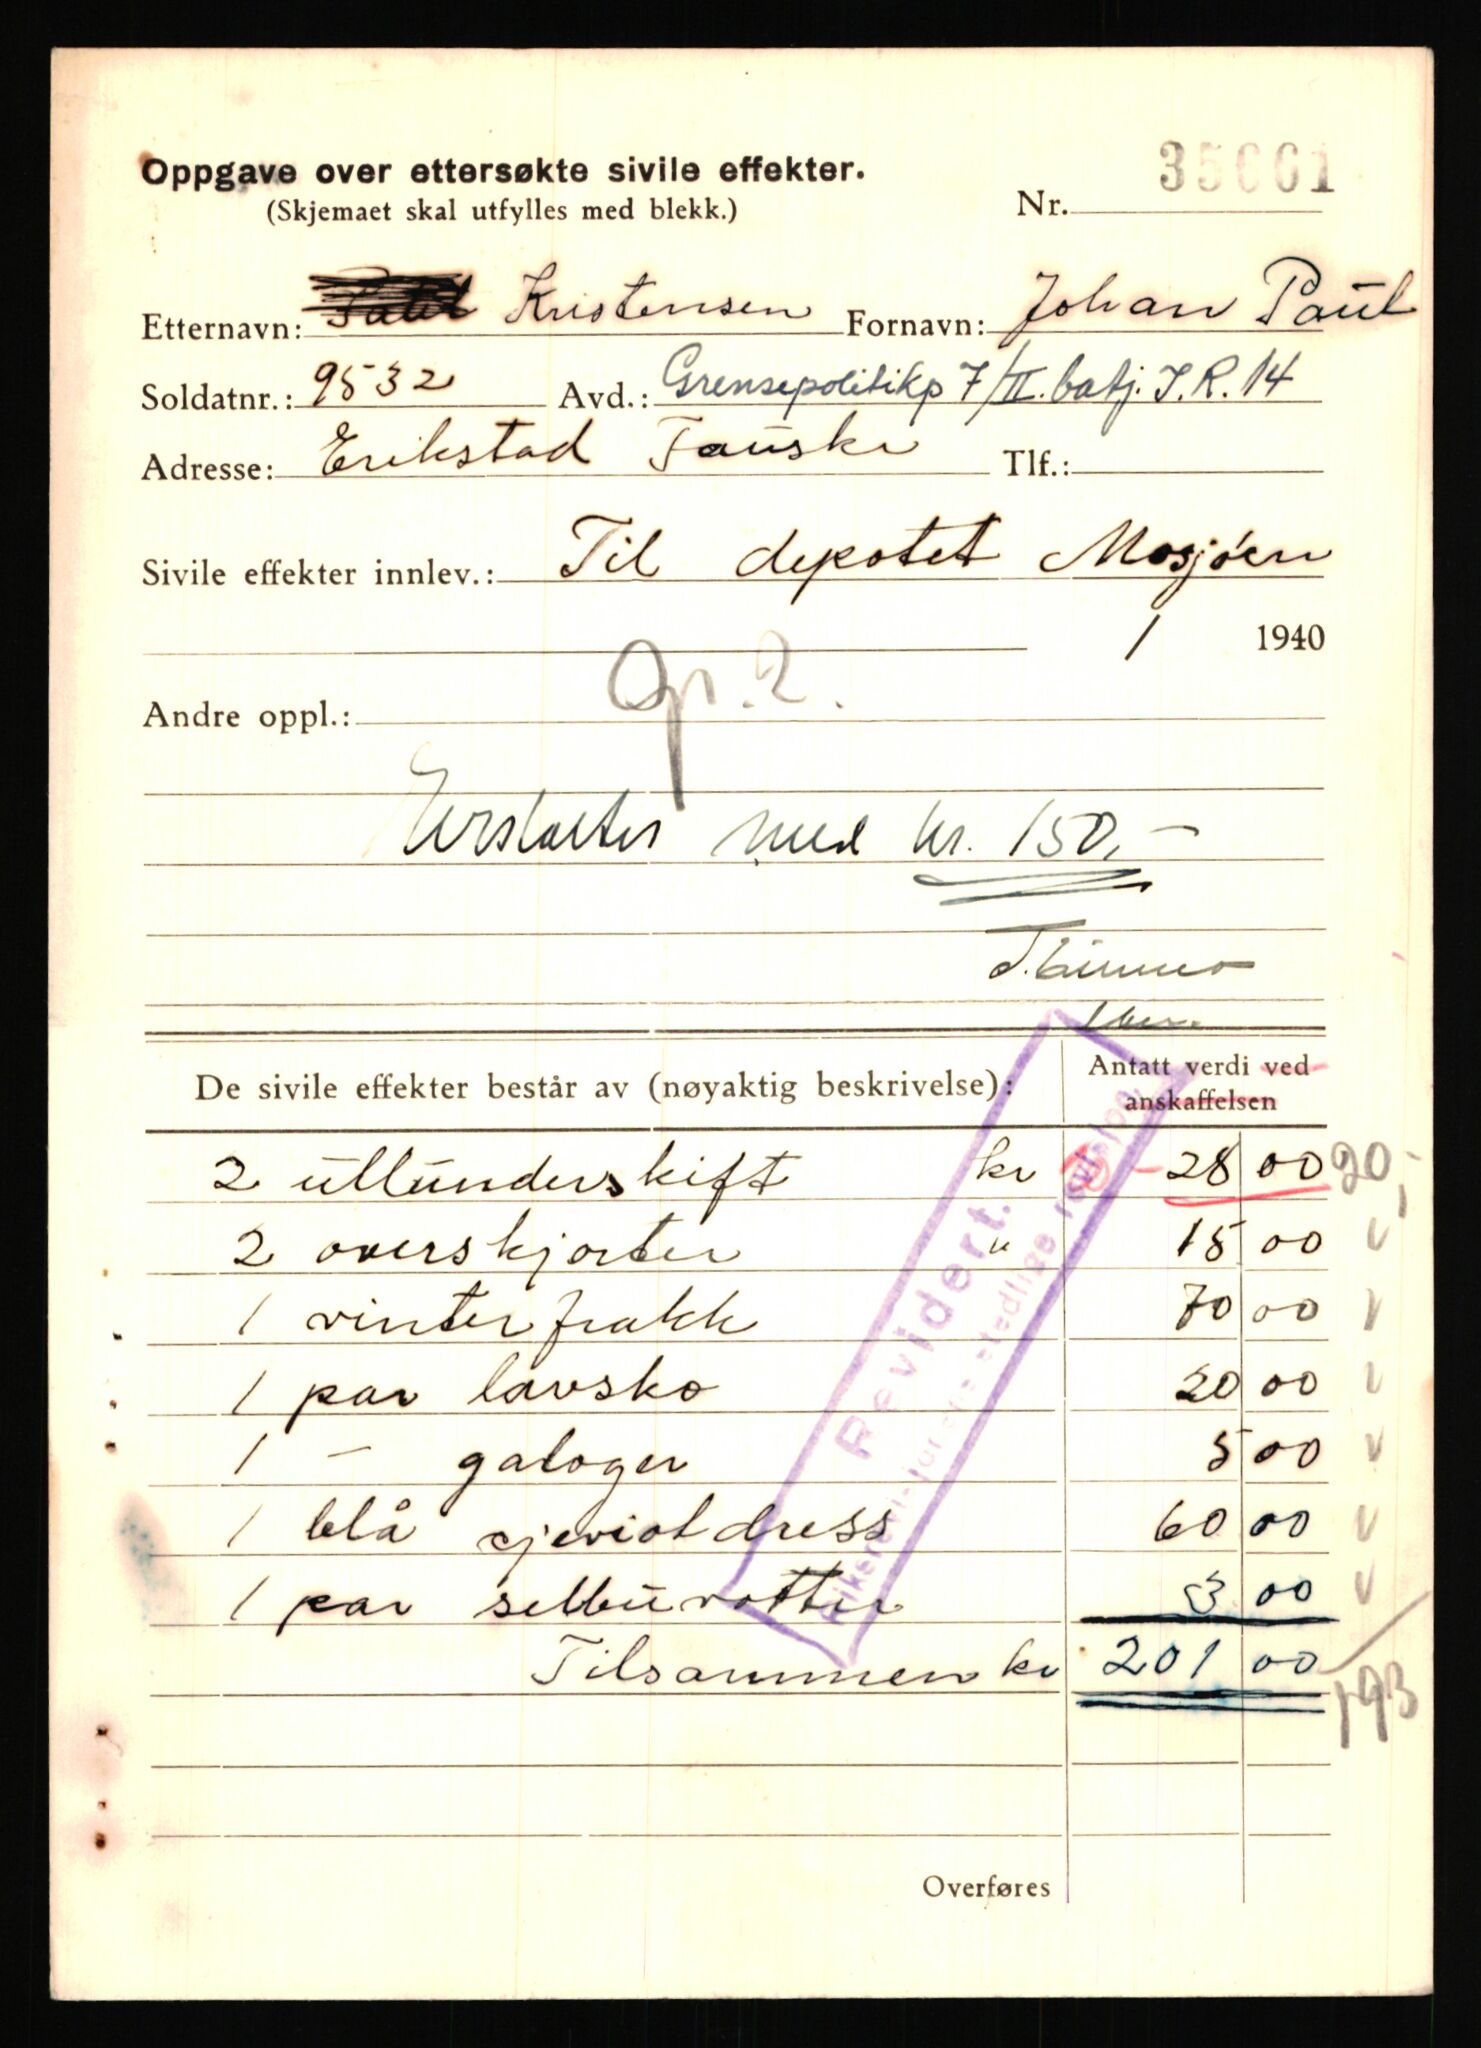 Oppgave over ettersøkte sivile effekter.
(Skjemaet skal utfylles med blekk.)
Nr. 35661
Etternavn: Kristensen Fornavn: Johan Paul
Soldatnr.: 9532 Avd.: Grensepolitikp 7/II. batj. I.R. 14
Adresse: Erikstad Fauske Tlf.:
Sivile effekter innlev.: Til depotet Mosjøen
1 1940
gr. 2.
Andre oppl.:
Erstattes med kr. 150,-
De sivile effekter består av (nøyaktig beskrivelse): Antatt verdi ved
anskaffelsen
2 ullunderskift kr 28 00 20,-
2 overskjorter " 15 00 v
1 vinterfrakk 70 00 v
1 par lavsko 20 00 v
1 — galoger 5 00 v
1 blå sjeviotdress 60 00 v
1 par selbuvotter 3 00 v
Tilsammen kr 201 00 193
Overføres
Revidert.